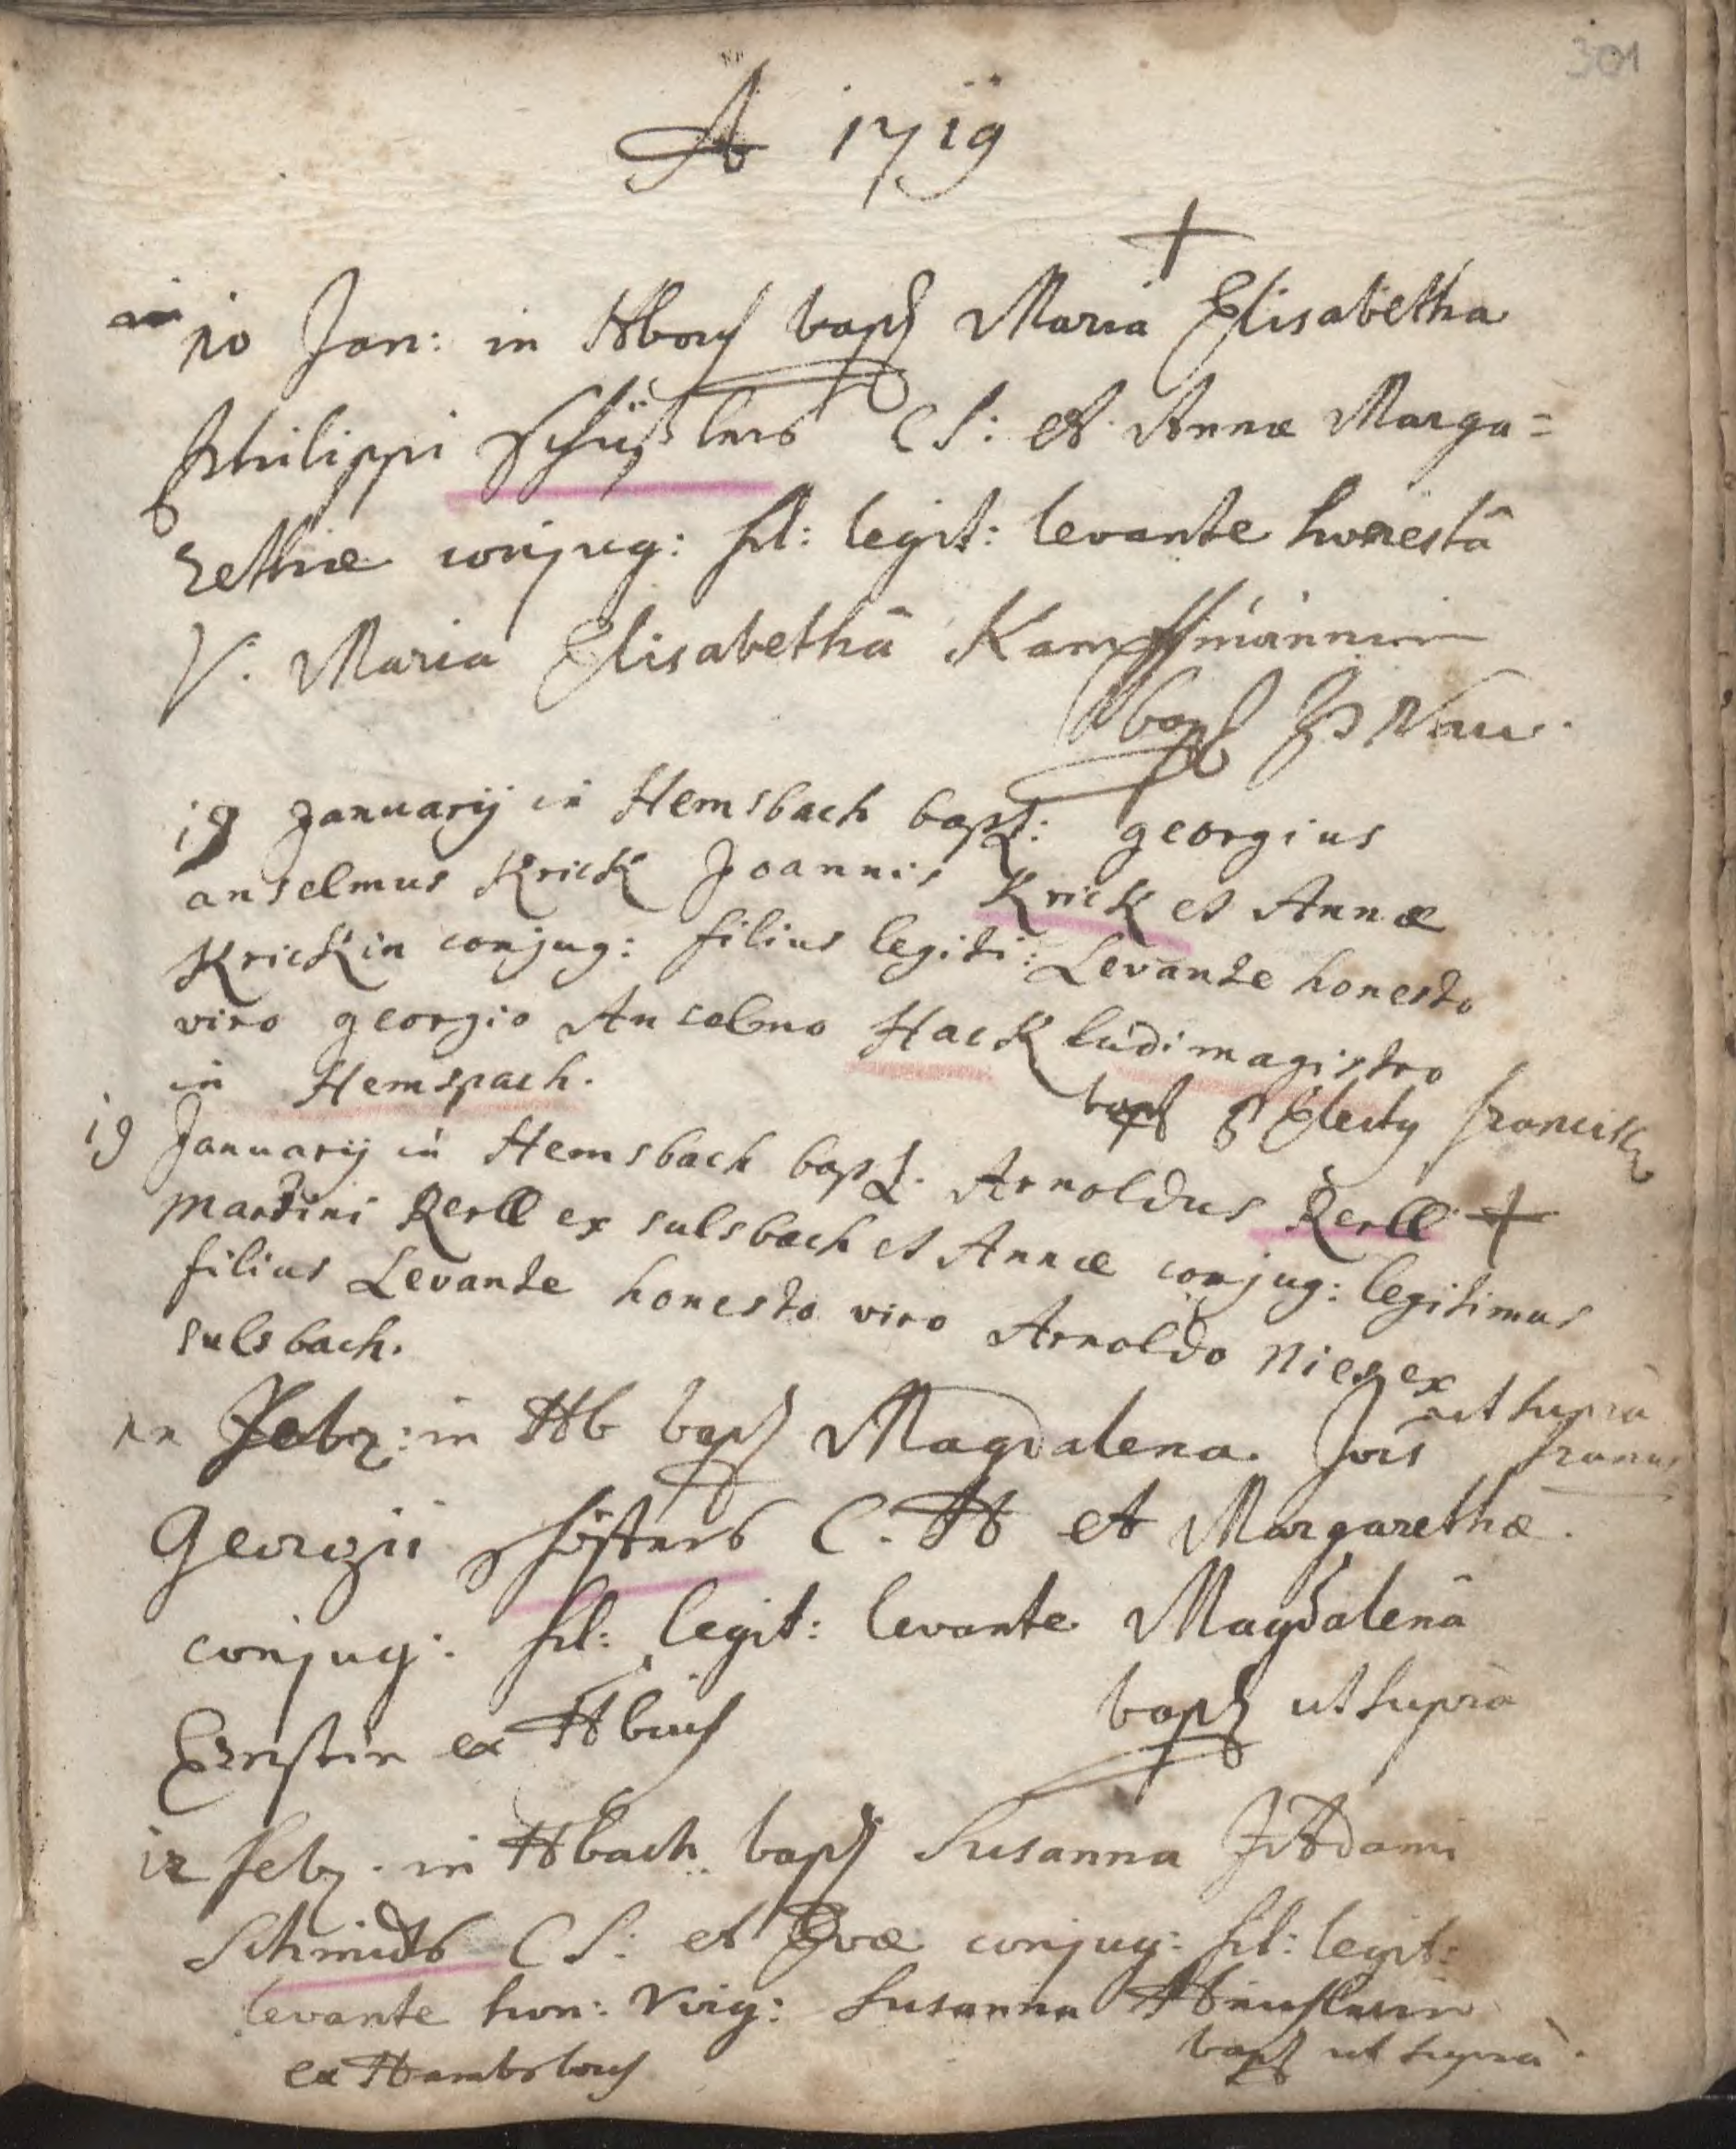 301
A 1719
+
10 Jan: in Hbach bapt Maria Elisabetha
Philippi Schüßlers C S: et Annæ Marga=
rethæ conjug: fil: legit: levante honestâ
V. Maria Elisabethâ Kauffmännin
bapt P Nau.
19 Januarij in Hemsbach bapt: georgius
anselmus Krick Joannis Krick et Annæ
Krickin conjug: filius legiti: Levante honesto
viro georgio Anselmo Hack ludimagistro
in Hemspach.
bapt P Electus francisc
19 Januarij in Hemsbach bapt. Arnoldus Kerll +
martini Kerll ex sulsbach et Annæ conjug: legitimus
filius Levante honesto viro Arnoldo Nies ex
sulsbach.
ut supra
Febr: in Hb bapt Magdalena. Jois
Georgii C. H et Margarethæ.
conjug: fil: legit: levante Magdalenâ
Ernstin ex Hbach
bapt ut supra
12 febr. in Hbach bapt Susanna J Adami
Schmidts C S: et Evæ conjug: fil: legit:
levante hon: Virg: Susanna
ex Hambsbach
bapt ut supra.